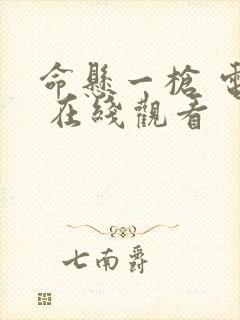 命懸一槍 電
在綫觀看
七南爵